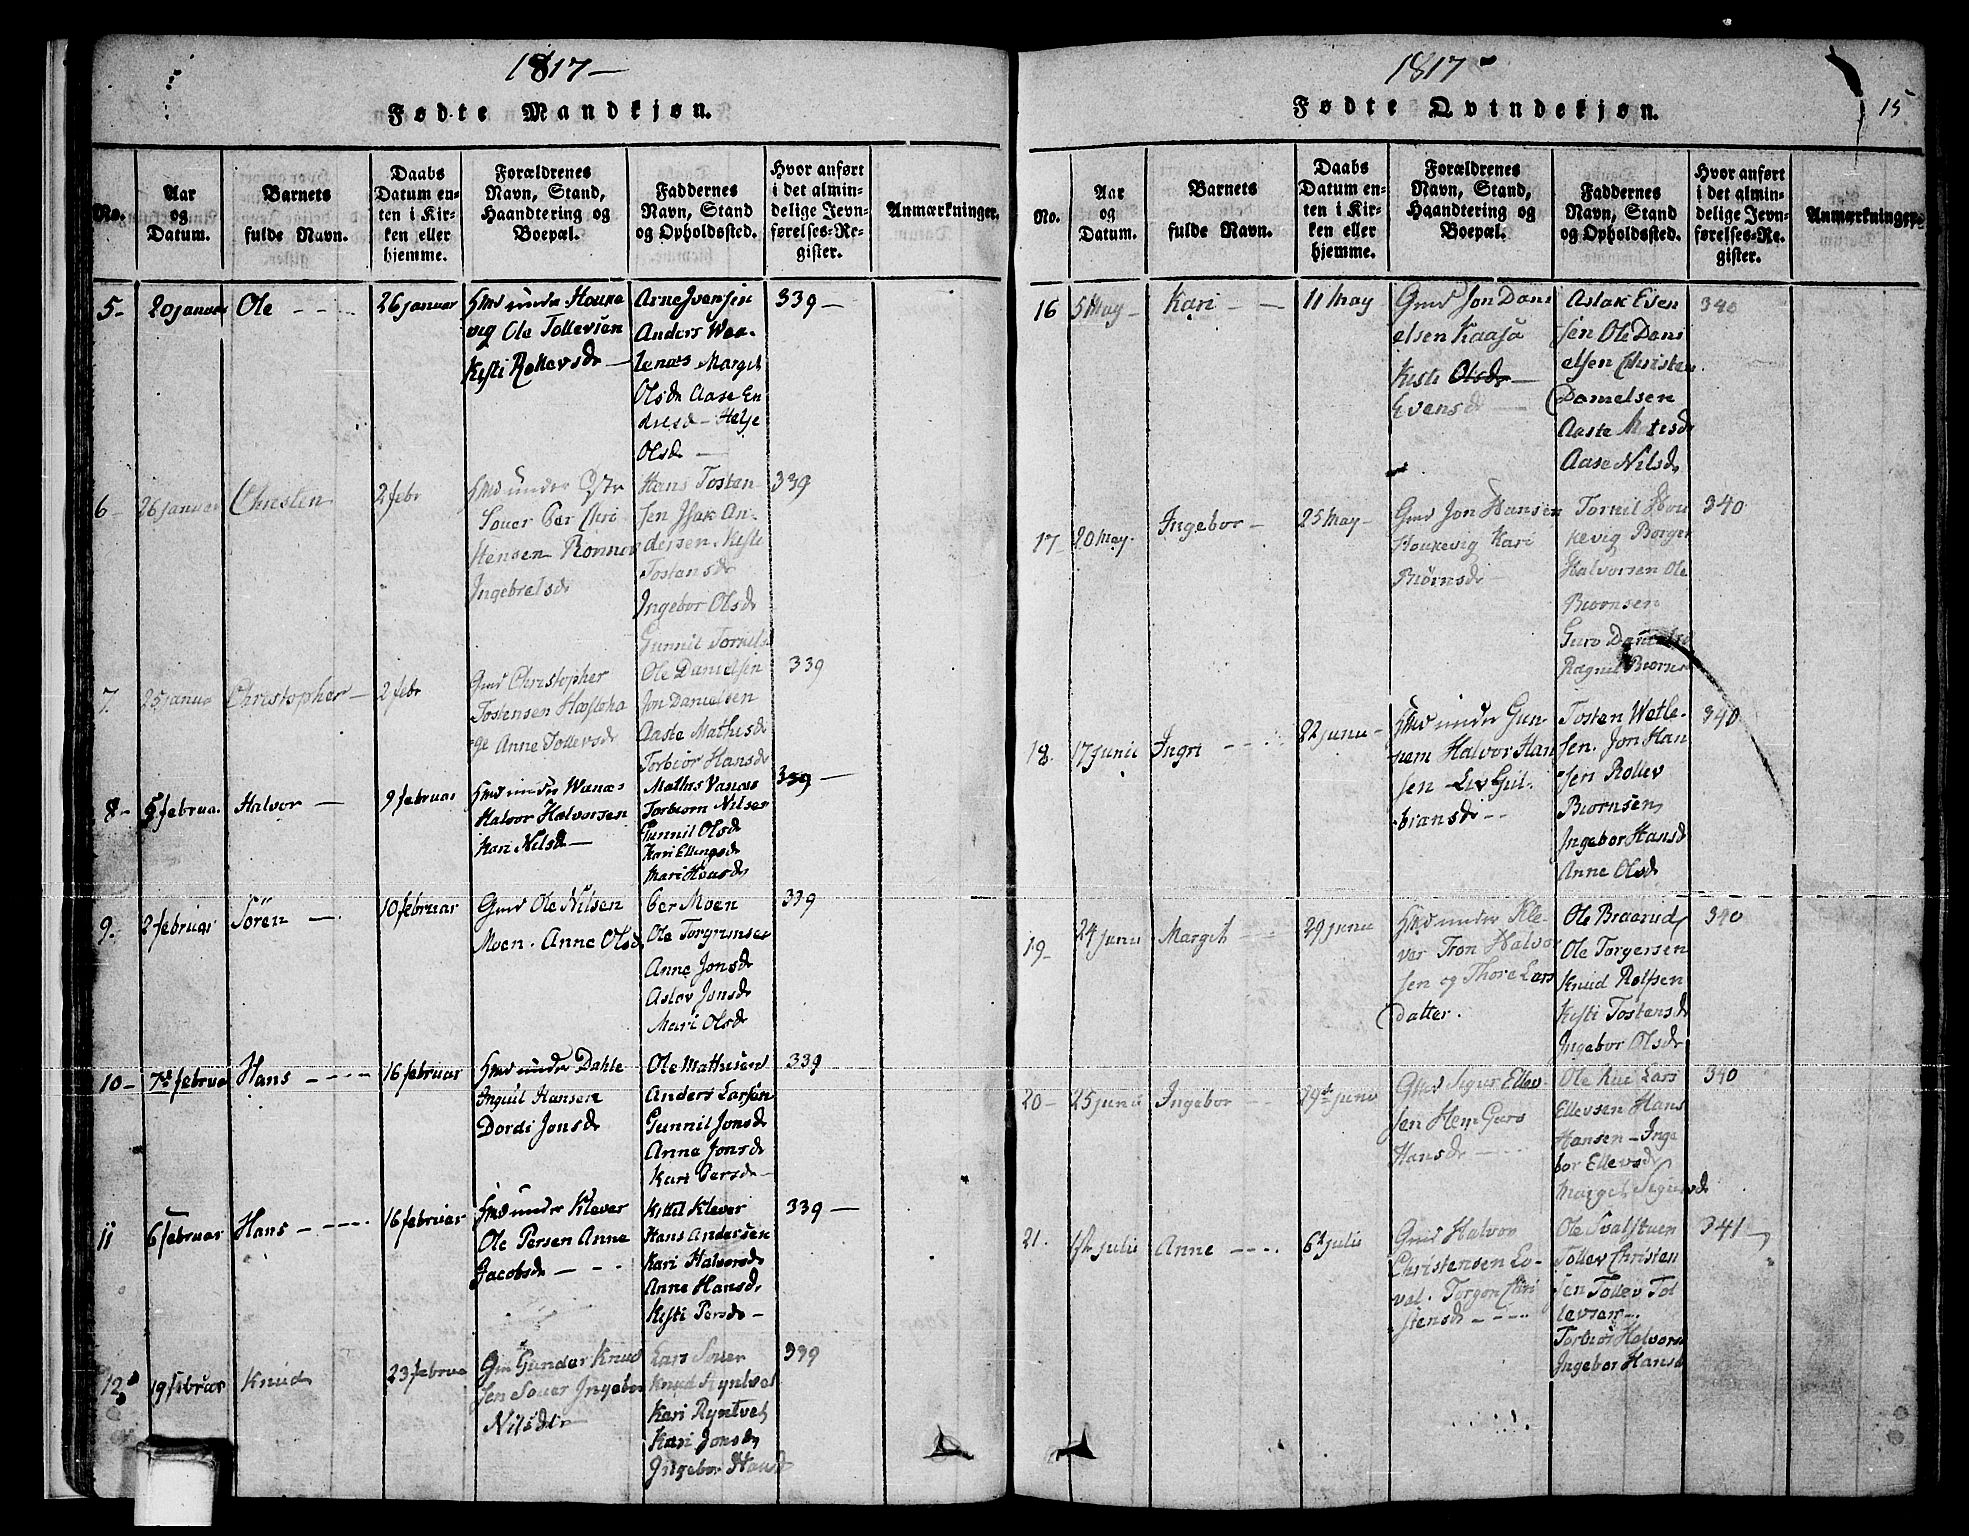 1817
Fødte Mandkjøn.
No.
Aar
og
Datum.
Barnets
fulde Navn.
Daabs
Datum en-
ten i Kir-
ken eller
hjemme.
Forældrenes
Navn, Stand,
Haandtering og
Boepæl.
Faddernes
Navn, Stand
og Opholdssted.
Hvor anført
i det almin-
delige Jevn-
førelses-Re-
gister.
Anmærkninger.
5 - 20 januar Ole 26 januar
Hmd under Houke
vig Ole Tollevsen
Kisti Rollevsdr
Arne Ivensen
Anders Waa
lenæs Margit
Olsdr Aase En
dresd - Helje
Olsdr
339 -
6 - 26 januar Christen 2 febr
Hmd under
Souer Per Chri
stensen Ronnou
Ingebretsdr
Hans Tostan
sen Isak An-
dersen. Kisti
Tostansdr
Ingebor Olsdr
Gunnil
339
7. 25 janua Christopher 2 febr
Gmd Christopher
Tostensen Hæsleha
ge Anne Tollevsdr
Ole Danielsen
Jon Danielsen
Aaste Mathisdr
Torbior Hansdr
339
8 - 5 februa. Halvor 9 februar
Hmd under Wanæs
Halvor Halvorsen
Kari Nilsdr
Mathis Vanæs
Torbiorn Nilsen
Gunnil Olsdr
Kari Ellingsdr
Mari
339 -
9. 2 februar Sören 10 februar
Gmd Ole Nilsen
Moen. Anne Olsd
Per Moen
Ole Torgrimsen
Anne Jonsdr
Aslov Jonsdr
Mari Olsdr
339
10 - 7de februa Hans 16 februar
Hmd under Dahle
Inguil Hansen
Dordi Jonsdr
Ole Mathisen
Anders Larsen
Gunnil Jonsdr
Anne Jonsdr
Kari Persdr -
339
11 6 februar Hans 16 februar
Hmd under Klever
Ole Persen Anne
Jacobsdr
Kittil Klever
Hans Andersen
Kari Halvorsdr
Anne Hansdr
Kisti Persdr -
339 -
12 19 februar Knud 23 februa
Gm Gunder Knud
sen Souer Ingebor
Nilsdtr
Lars Souer
Knud Ryntvet
Kari Ryntvet
Kari Jonsdr
Ingebor Hansd
339
1817
15
Fødte Qvindekjøn.
No.
Aar
og
Datum.
Barnets
fulde Navn.
Daabs
Datum en-
ten i Kir-
ken eller
hjemme.
Forældrenes
Navn, Stand,
Haandtering og
Boepæl.
Faddernes
Navn, Stand
og Opholdssted.
Hvor anført
i det almin-
delige Jevn-
førelses-Re-
gister.
Anmærkninger.
16 5 May Kari 11 May
Gmd Jon Dani
elsen Kaasa
Kisti Olsdr
Evensdr
Aslak Eisen
sen Ole Dani
elsen Christen
Danielsen
Aaste Matisdr
Aase Nilsdr
340
17 20 May. Ingebor 25 May
Gmd Jon Hansen
Houkevig Kari
Biörnsdr
Tornil Hou
kevig Borger
Halvorsen Ole
Biornsen
Guro
Ragnil Biornsd
340
18. 17 junii Ingri 22 junii
Hmd under Gun-
nem Halvor Han
sen - Liv Gul-
bransdr
Tosten Wetle-
sen. Jon Han
sen Rollev
Biornsen
Ingebor Hansdr
Anne Olsdr
340
19 - 24 junii Margit 29 junii
Hmd under Kle-
ver Tron Halvor
sen og Thore Lars
datter.
Ole Braarud
Ole Torgersen
Knud Rolfsen
Kisti Tostensdr
Ingebor Olsdr
340
20 - 25 junii Ingebor 29de junii
Gmd Sigur Ellev
sen Hem Guro
Hansdr
Ole Lars
Ellevsen Hans
Hansen - Inge
bor Ellevsdr
Margit Sigursdr
340
21. 1ste julii Anne 6te julii
Gmd Halvor
Christensen Lo-
val. Torgon Chri
stensdr
Ole Svalstuen
Tollev Christen
sen Tollev Tol
levsen
Torbior Halvorsd
Ingebor Hansd
341